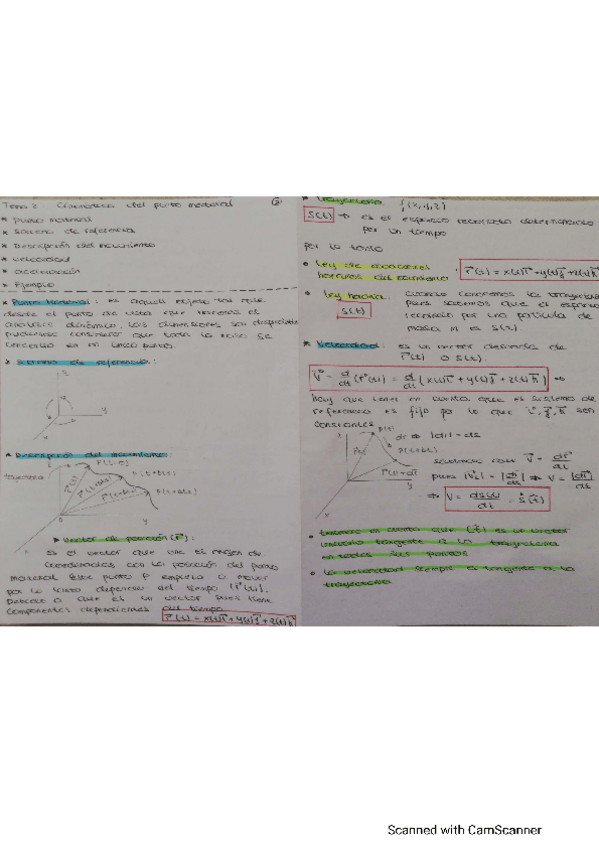 Tema 2: Cinemática del punto material
②
* Punto material
* Sistema de referencia
* Descripción del movimiento
* Velocidad
* Aceleración
* Ejemplo
* Punto Material: es aquel objeto tal que
desde el punto de vista que haremos el
análisis dinámico, las dimensiones son
pudiéndose considerar que toda la masa se
concentra en un único punto.
* Sistema de referencia:
z
y
x
* Descripción del movimiento:
Trayectoria
z
P(t=0)
P(t+Δt)
r(t)
y
▸ Vector de posición (r⃗):
Es el vector que une el origen de
coordenadas con la posición del punto
material. Este punto P empieza a mover
por lo tanto depende del tiempo (r⃗(t)).
Debido a que es un vector pues tiene
componentes dependientes del tiempo
r⃗(t) = x(t)i⃗+y(t)j⃗+z(t)k⃗
* Trayectoria: f(x,y,z)
S(t) → es el espacio recorrido
por un tiempo
por lo tanto
• Ley de
horarias del movimiento: r⃗(t) = x(t)i⃗+y(t)j⃗+z(t)k⃗
• Ley horaria: cuando conocemos la trayectoria
S(t)
pues sabemos que el espacio
recorrido por una partícula de
masa m es s(t)
* Velocidad: es un vector derivada de
r⃗(t) o S(t).
V⃗ = d/dt (r⃗(t)) = d/dt (x(t)i⃗+y(t)j⃗+z(t)k⃗) ⇒
Hay que tener en cuenta que el sistema de
referencia es fijo por lo que i⃗, j⃗, k⃗ son
constantes
P(t)
dr ⇒ |dr| = ds
P(t+Δt)
r(t)
V⃗ = dr⃗/dt
y
x
pues |V⃗| = |dr⃗/dt| ⇒ V = |dr⃗|/dt
⇒ V = ds(t)/dt = ṡ(t)
• tenemos en cuenta que (t⃗) es un vector
unitario tangente a la trayectoria
en todos sus puntos
• la velocidad siempre es tangente a la
trayectoria
Scanned with CamScanner